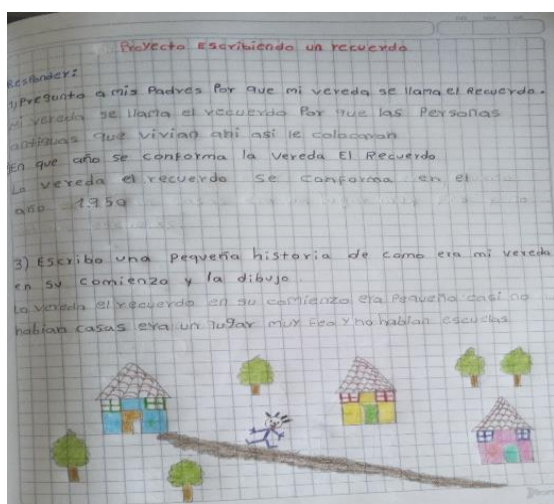 Proyecto Escribiendo un recuerdo
Responder:
1) Pregunto a mis Padres Por que mi vereda se llama el Recuerdo.
mi vereda se llama el recuerdo Por que las Personas
antiguas que vivian ahi asi le colocaron
En que año se conforma la vereda El Recuerdo
La vereda el recuerdo se conforma en el
año 1.950
3) Escribo una pequeña historia de como era mi vereda
en su comienzo y la dibujo.
La vereda el recuerdo en su comienzo era Pequeña casi no
habian casas era un lugar muy feo y no habian escuelas